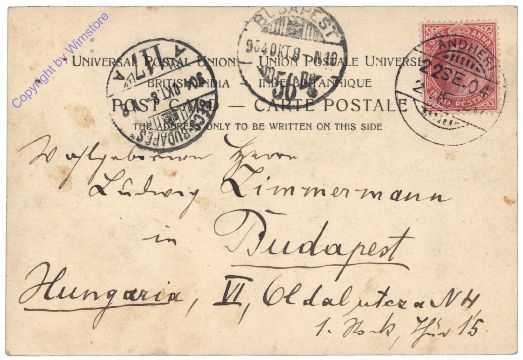 Copyright by Wimstore
UNIVERSAL POSTAL UNION — UNION POSTALE UNIVERSELLE
BRITISH INDIA INDE BRITANNIQUE
POST CARD — CARTE POSTALE
THE ADDRESS ONLY TO BE WRITTEN ON THIS SIDE
BUDAPEST
904 OKT 8
ANDHERI
22 SE. 04
BÉCS
BUDAPEST
111
A
Wohlgeborenen Herrn
Ludwig Zimmermann
in
Budapest
Hungaria, VI, Oldal utcza N 4
1. Stock, Thür 15.